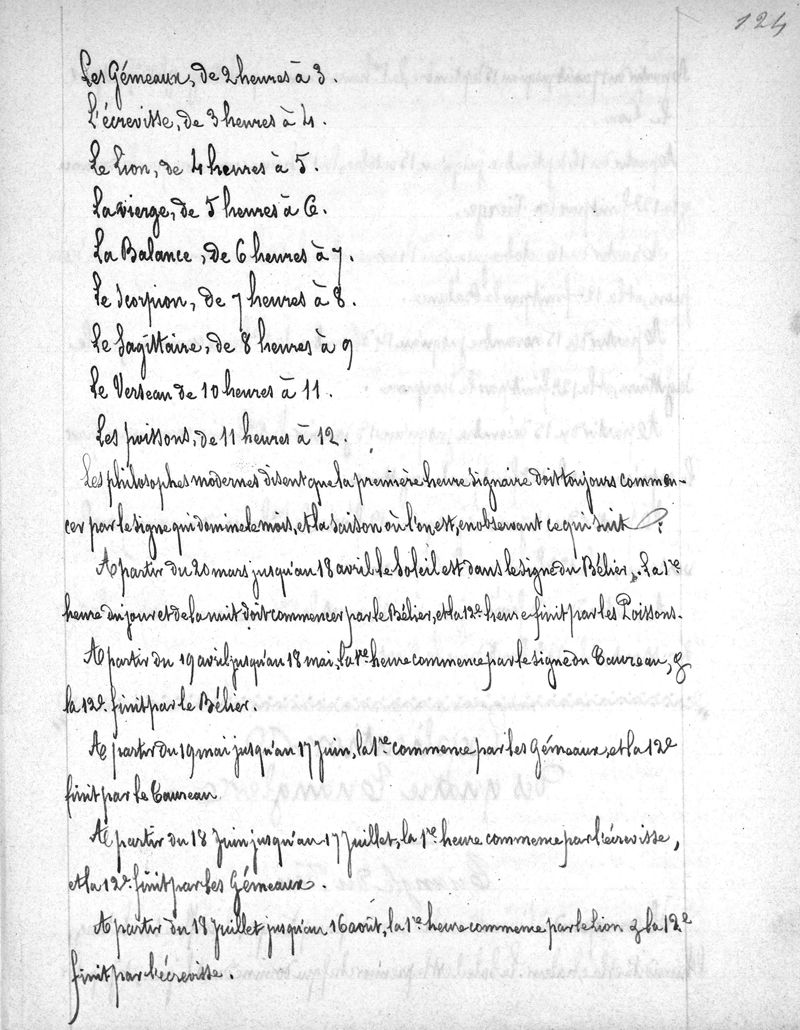 124
Les Gémeaux, de 2 heures à 3.
L'écrevisse, de 3 heures à 4.
Le Lion, de 4 heures à 5.
La vierge, de 5 heures à 6.
La Balance, de 6 heures à 7.
Le Scorpion, de 7 heures à 8.
Le Sagittaire, de 8 heures à 9
Le Verseau de 10 heures à 11.
Les poissons, de 11 heures à 12.
Les philosophes modernes disent que la première heure signaire doit toujours commen-
cer par le signe qui domine le mois, et la saison où l'on est, en observant ce qui suit :
A partir du 20 mars jusqu'au 18 avril le Soleil est dans le signe du Bélier, La 1re
heure du jour et de la nuit doit commencer par le Bélier, et la 12e heure finit par les Poissons.
A partir du 19 avril jusqu'au 18 mai, la 1re heure commence par le signe du Taureau, &
la 12e. finit par le Bélier.
A partir du 19 mai jusqu'au 17 juin, la 1re commence par les Gémeaux, et la 12e
finit par le Taureau
A partir du 18 Juin jusqu'au 17 Juillet, la 1re heure commence par l'écrevisse,
et la 12e. finit par les Gémeaux.
A partir du 18 Juillet jusqu'au 16 août, la 1re heure commence par le lion & la 12e
finit par l'écrevisse.